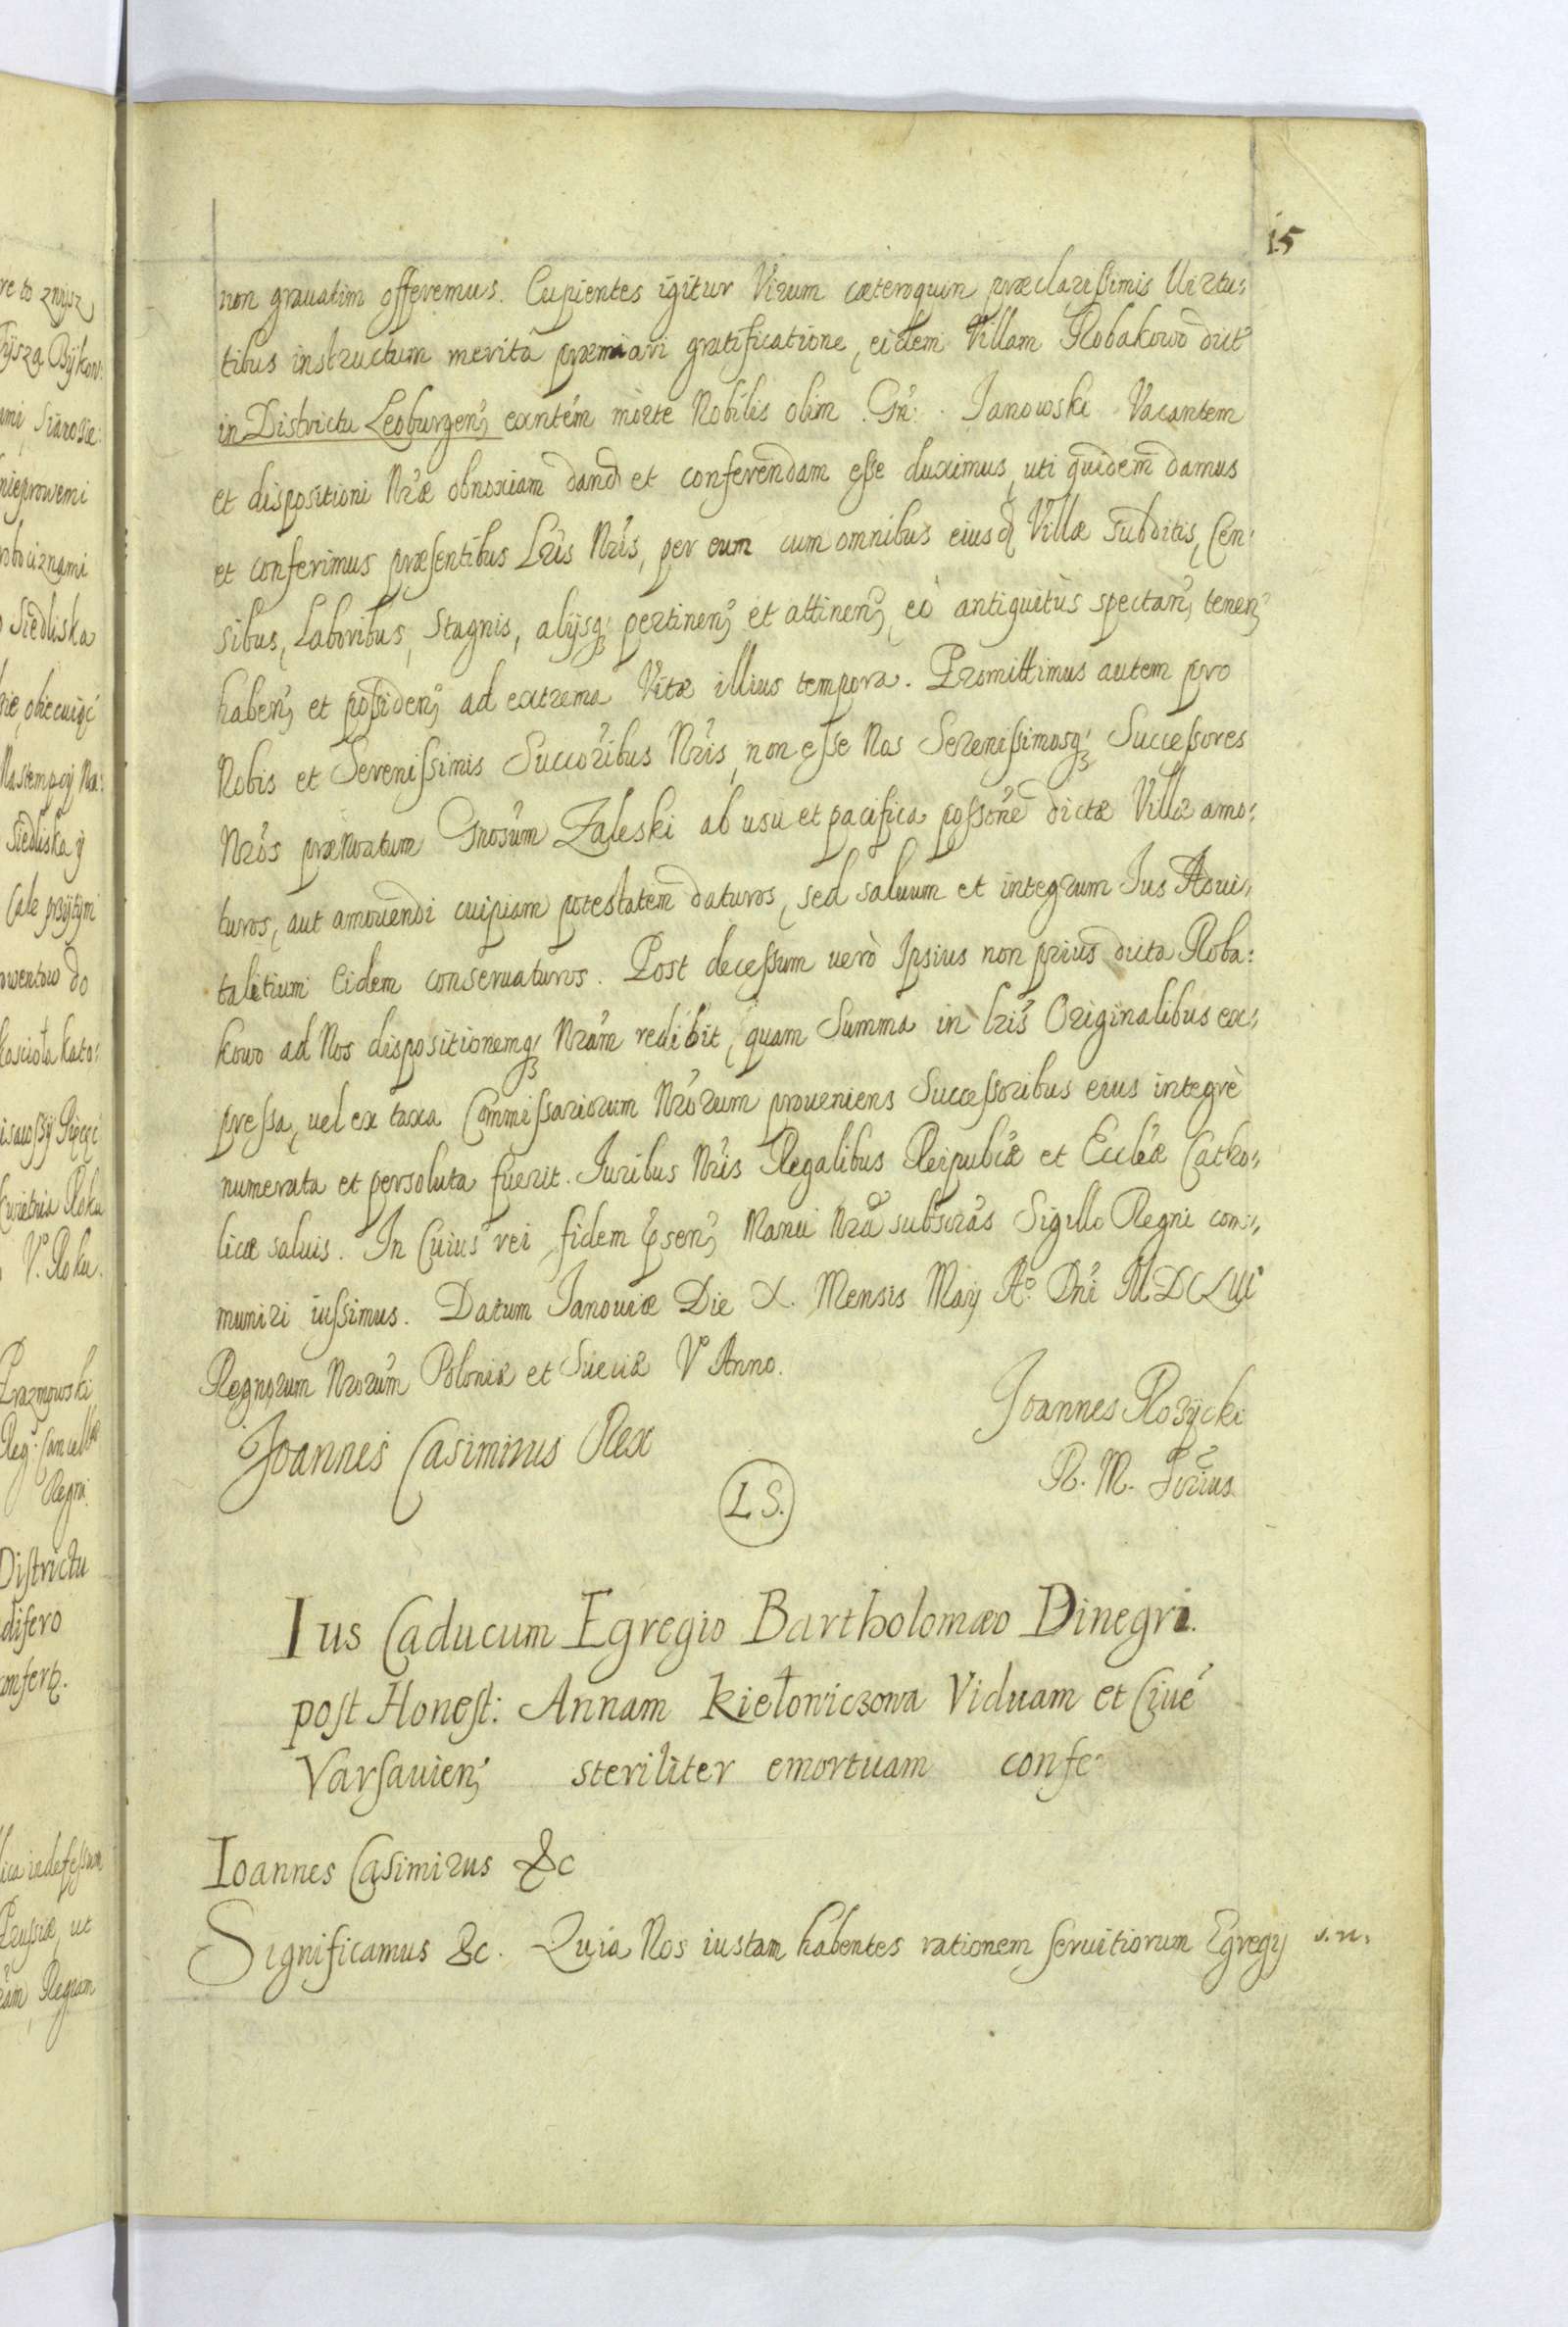 15
non grauatim offeremus. Cupientes igitur Virum cæteroquin præclarissimis Virtu:
tibus instructum merita præmiari gratificatione, eidem Villam Robakowo dict
in Districtu Leoburgen, exntém morte Nobilis olim Gn: Janowski Vacantem
et dispositioni Nræ obnoxiam dand et conferendam esse duximus, uti quidem damus
et conferimus præsentibus Lris Nris, per eum cum omnibus eiusd Villæ subditis, Cen:
sibus, Laboribus, Stagnis, alijsq; pertinen; et attinen; eò antiquitùs spectan; tenen;
haben; et possiden; ad extrema Vitæ illius tempora. Promittimus autem pro
Nobis et Serenissimis Succoribus Nris, non esse Nos Serenissimosq; Successores
Nros prænoatum Gnosum Zaleski ab usu et pacifica possone dictæ Villæ amo:
turos, aut amouendi cuipiam potestatem daturos, sed saluum et integrum Ius Adui:
talitium Eidem conseruaturos. Post decessum uerò Ipsius non prius dicta Roba:
kowo ad Nos dispositionemq; Nram redibit, quam Summa in lris Originalibus ex:
pressa, uel ex taxa Commissariorum Nrorum proueniens Successoribus eius integrè
numerata et persoluta fuerit. Iuribus Nris Regalibus Reipublæ et Eccleæ Catho:
licæ saluis. In Cuius rei fidem psen; Manu Nra subscras Sigillo Regni com:
muniri iussimus. Datum Janouiæ Die X. Mensis Maij Ao. Dni MDCLIII
Regnorum Nrorum Poloniæ et Sueciæ Vo Anno.
Joannes Casimirus Rex
Joannes Rozycki
R. M. Srius
L. S.
Ius Caducum Egregio Bartholomæo Dinegri.
post Honest: Annam Kiełowiczowa Viduam et Ciué
Varsauien; steriliter emortuam confe
Ioannes Casimirus &c
Significamus &c. Quia Nos iustam habentes rationem seruitiorum Egregij s. n.